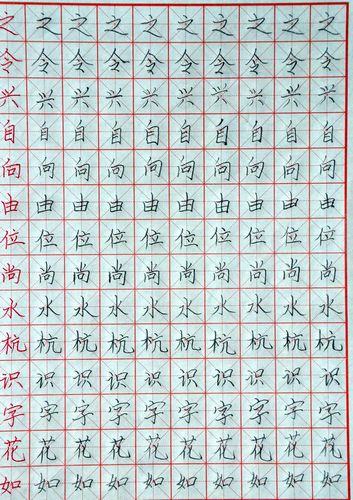 之之之之之之之之之之
令令令令令令令令令令
兴兴兴兴兴兴兴兴兴兴
自自自自自自自自自自
向向向向向向向向向向
由由由由由由由由由由
位位位位位位位位位位
尚尚尚尚尚尚尚尚尚尚
水水水水水水水水水水
杭杭杭杭杭杭杭杭杭杭
识识识识识识识识识识
字字字字字字字字字字
花花花花花花花花花花
如如如如如如如如如如